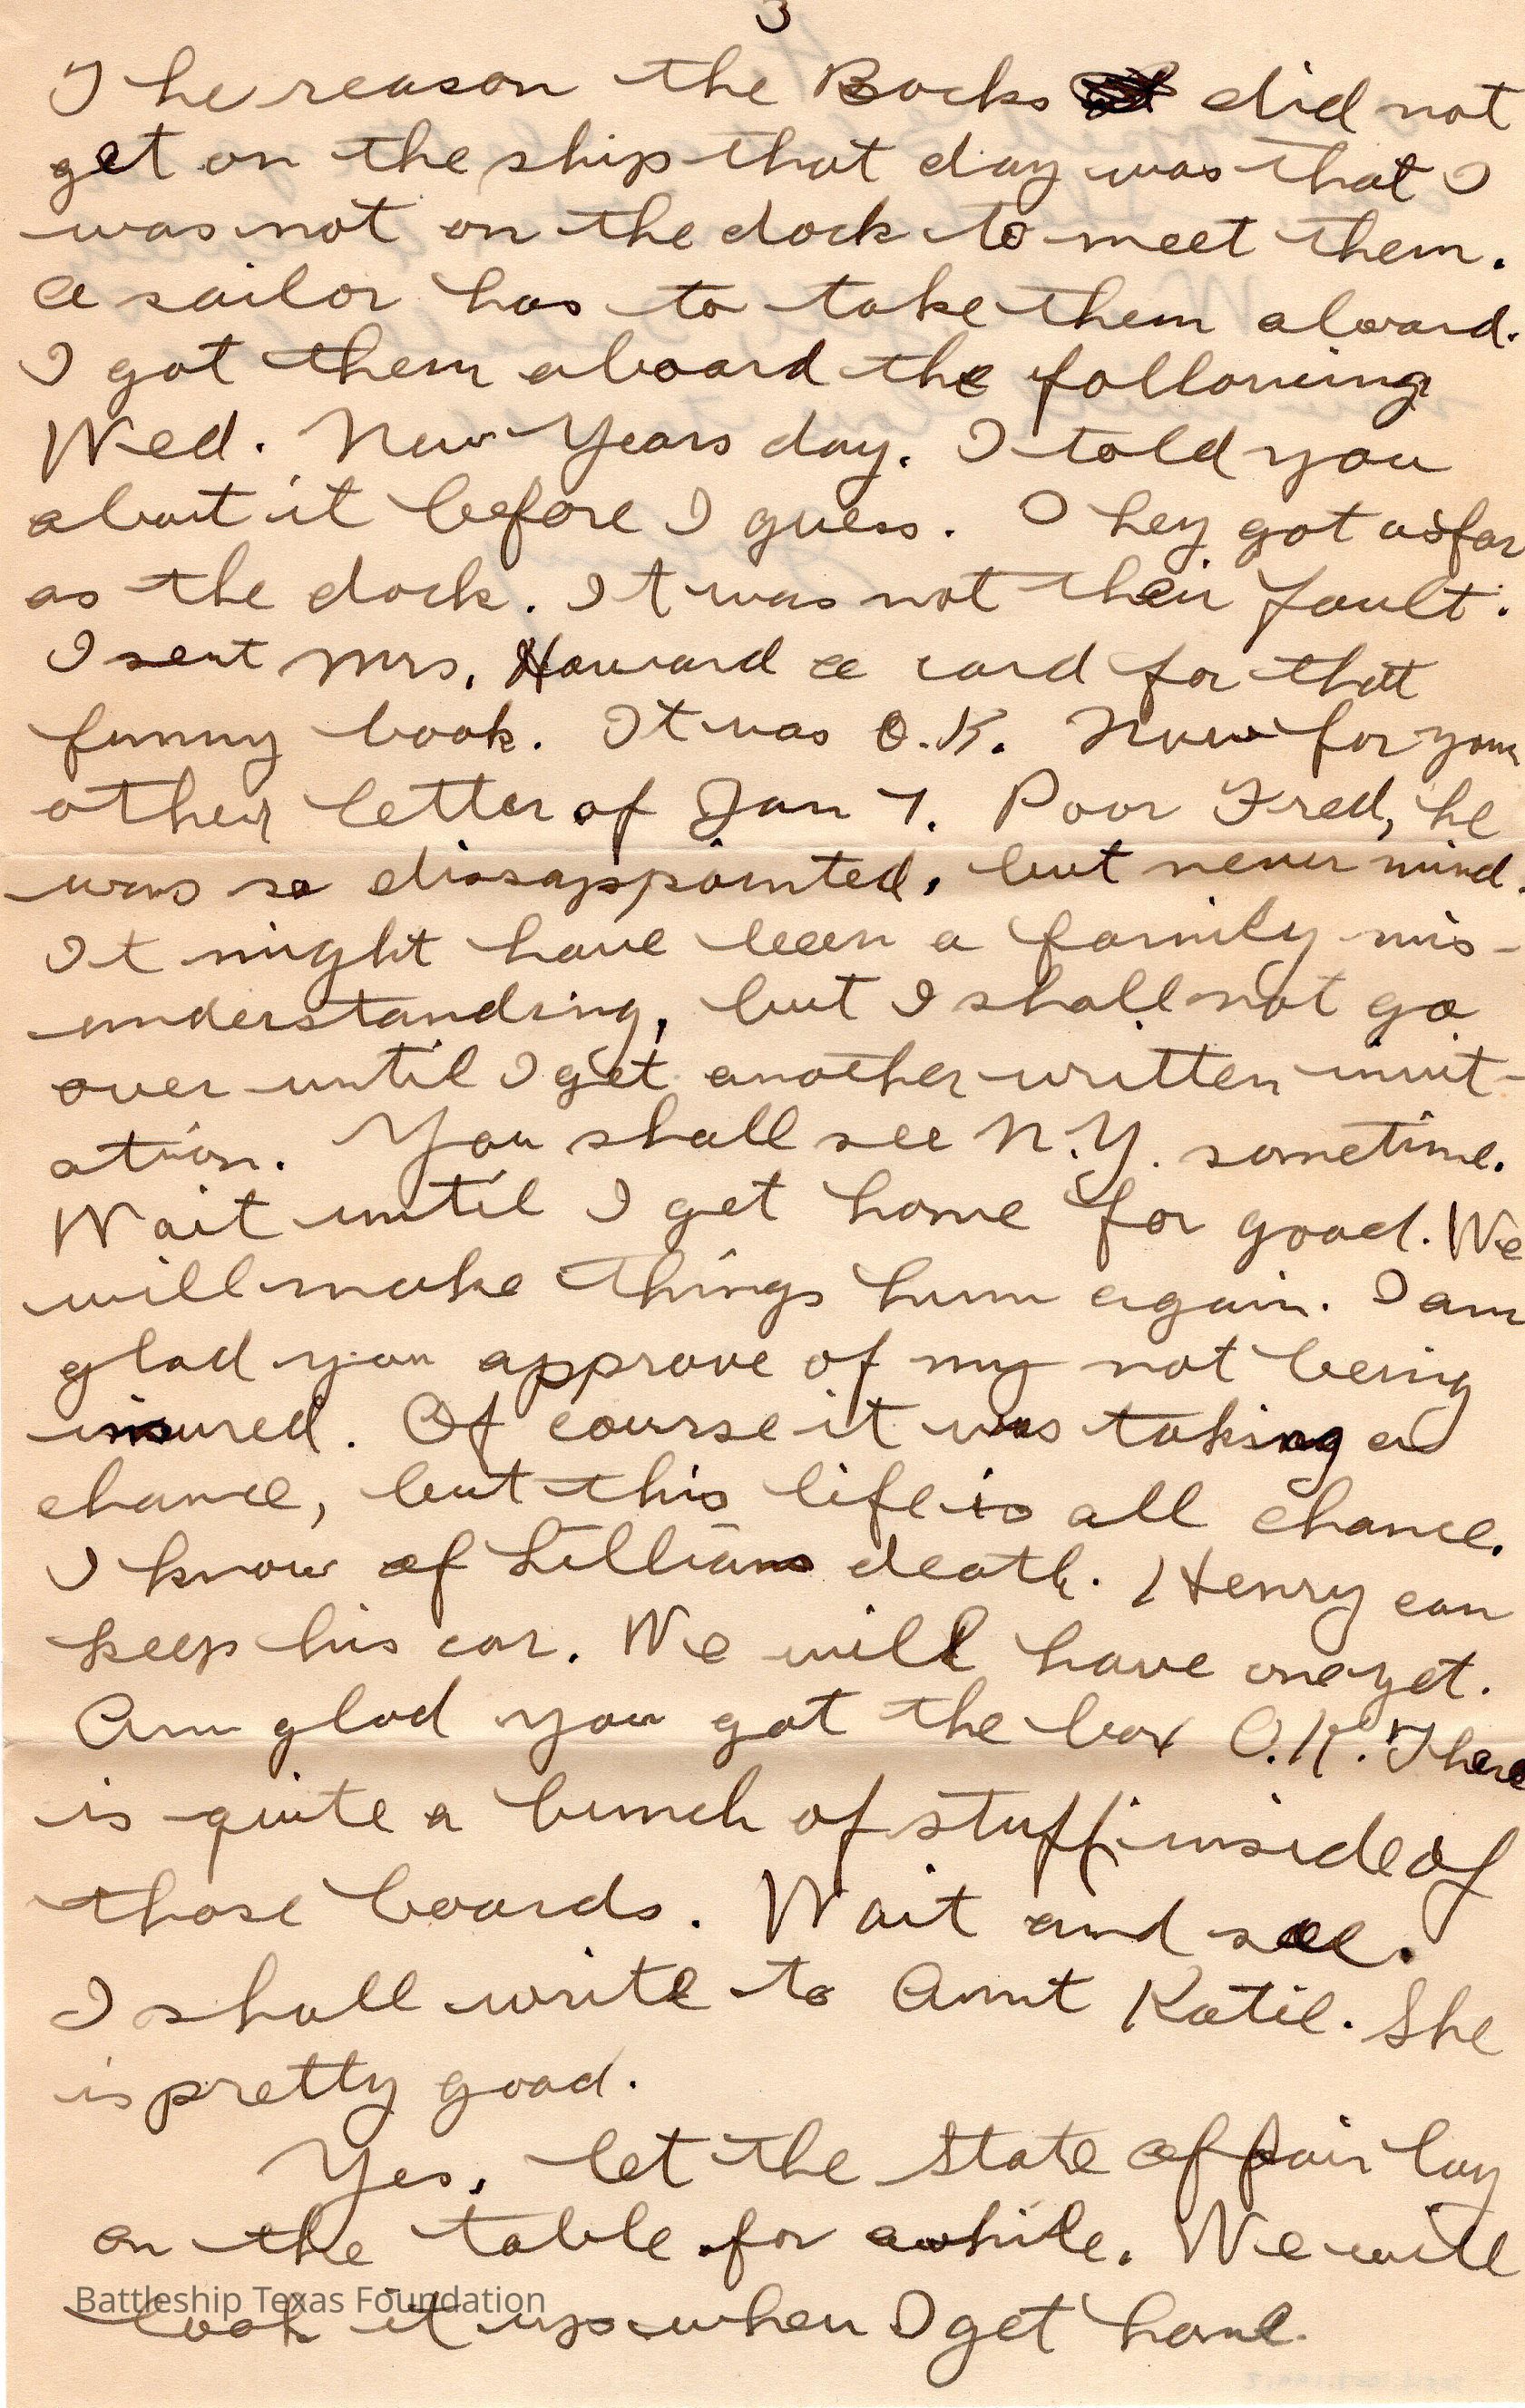 3
The reason the Bocks did not
get on the ship that day was that I
was not on the dock to meet them.
A sailor has to take them aboard.
I got them aboard the following
Wed. New Years day. I told you
about it before I guess. They got as far
as the dock. It was not their fault.
I sent Mrs. Howard a card for that
funny book. It was O.K. Now for your
other letter of Jan 7. Poor Fred, he
was so dissappointed, but never mind.
It might have been a family mis-
understanding, but I shall not go
over until I get another written invit-
ation. You shall see N.Y. sometime.
Wait until I get home for good. We
will make things hum again. I am
glad you approve of my not being
insured. Of course it was taking a
chance, but this life is all chance.
I know of Lillians death. Henry can
keep his car. We will have one yet.
Am glad you got the box O.K. There
is quite a bunch of stuff inside of
those boards. Wait and see.
I shall write to Aunt Katie. She
is pretty good.
Yes, let the State affair lay
on the table for awhile. We will
look it up when I get home.
Battleship Texas Foundation